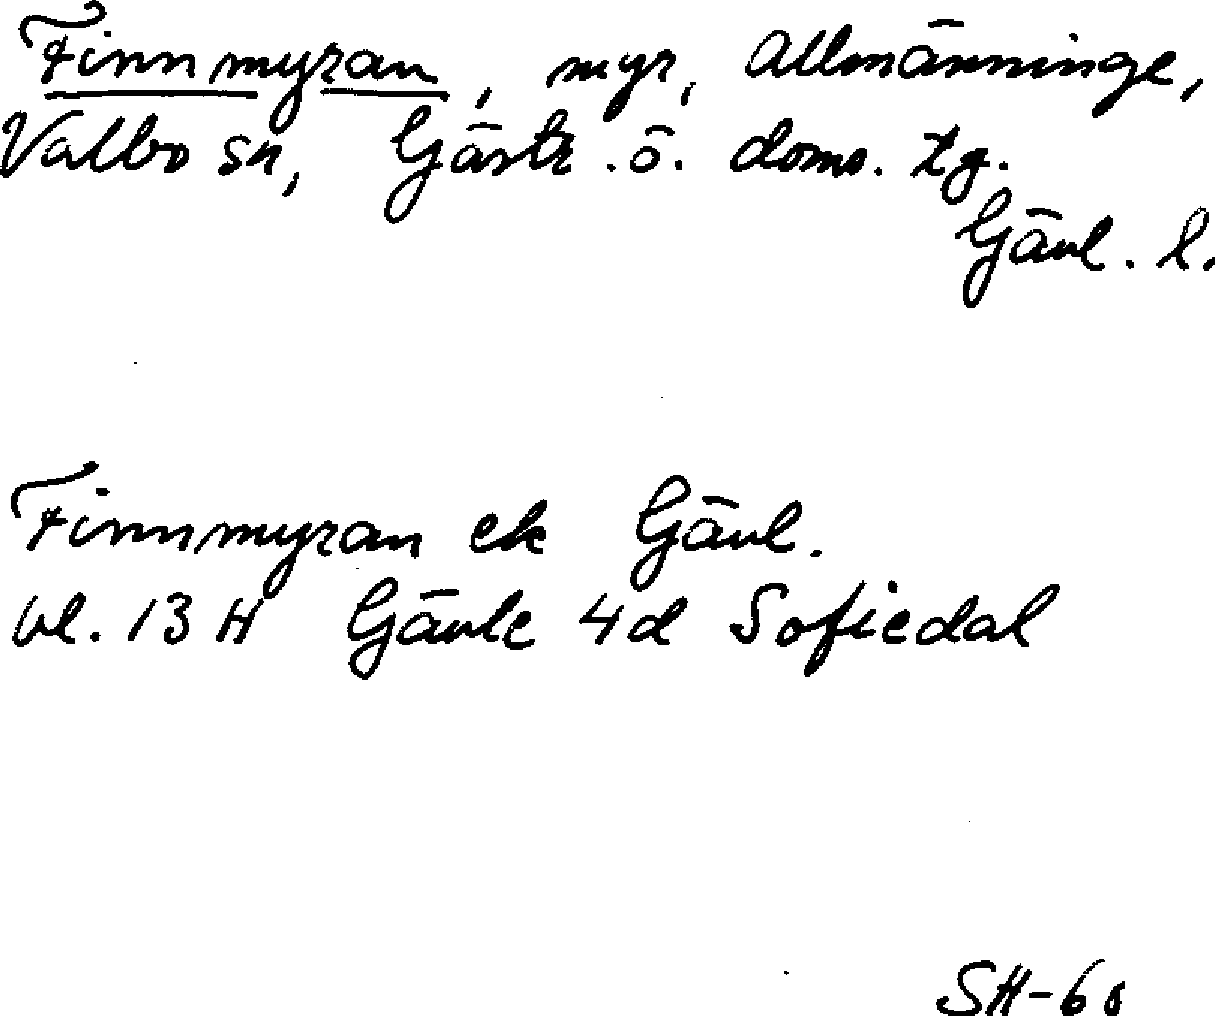 Finnmyran, myr, Allmänninge,
Valbo sn, Gästr. ö. doms. tg.
Gävl. l.
Finnmyran ek Gävl.
bl. 13 H Gävle 4d Sofiedal
SH-60